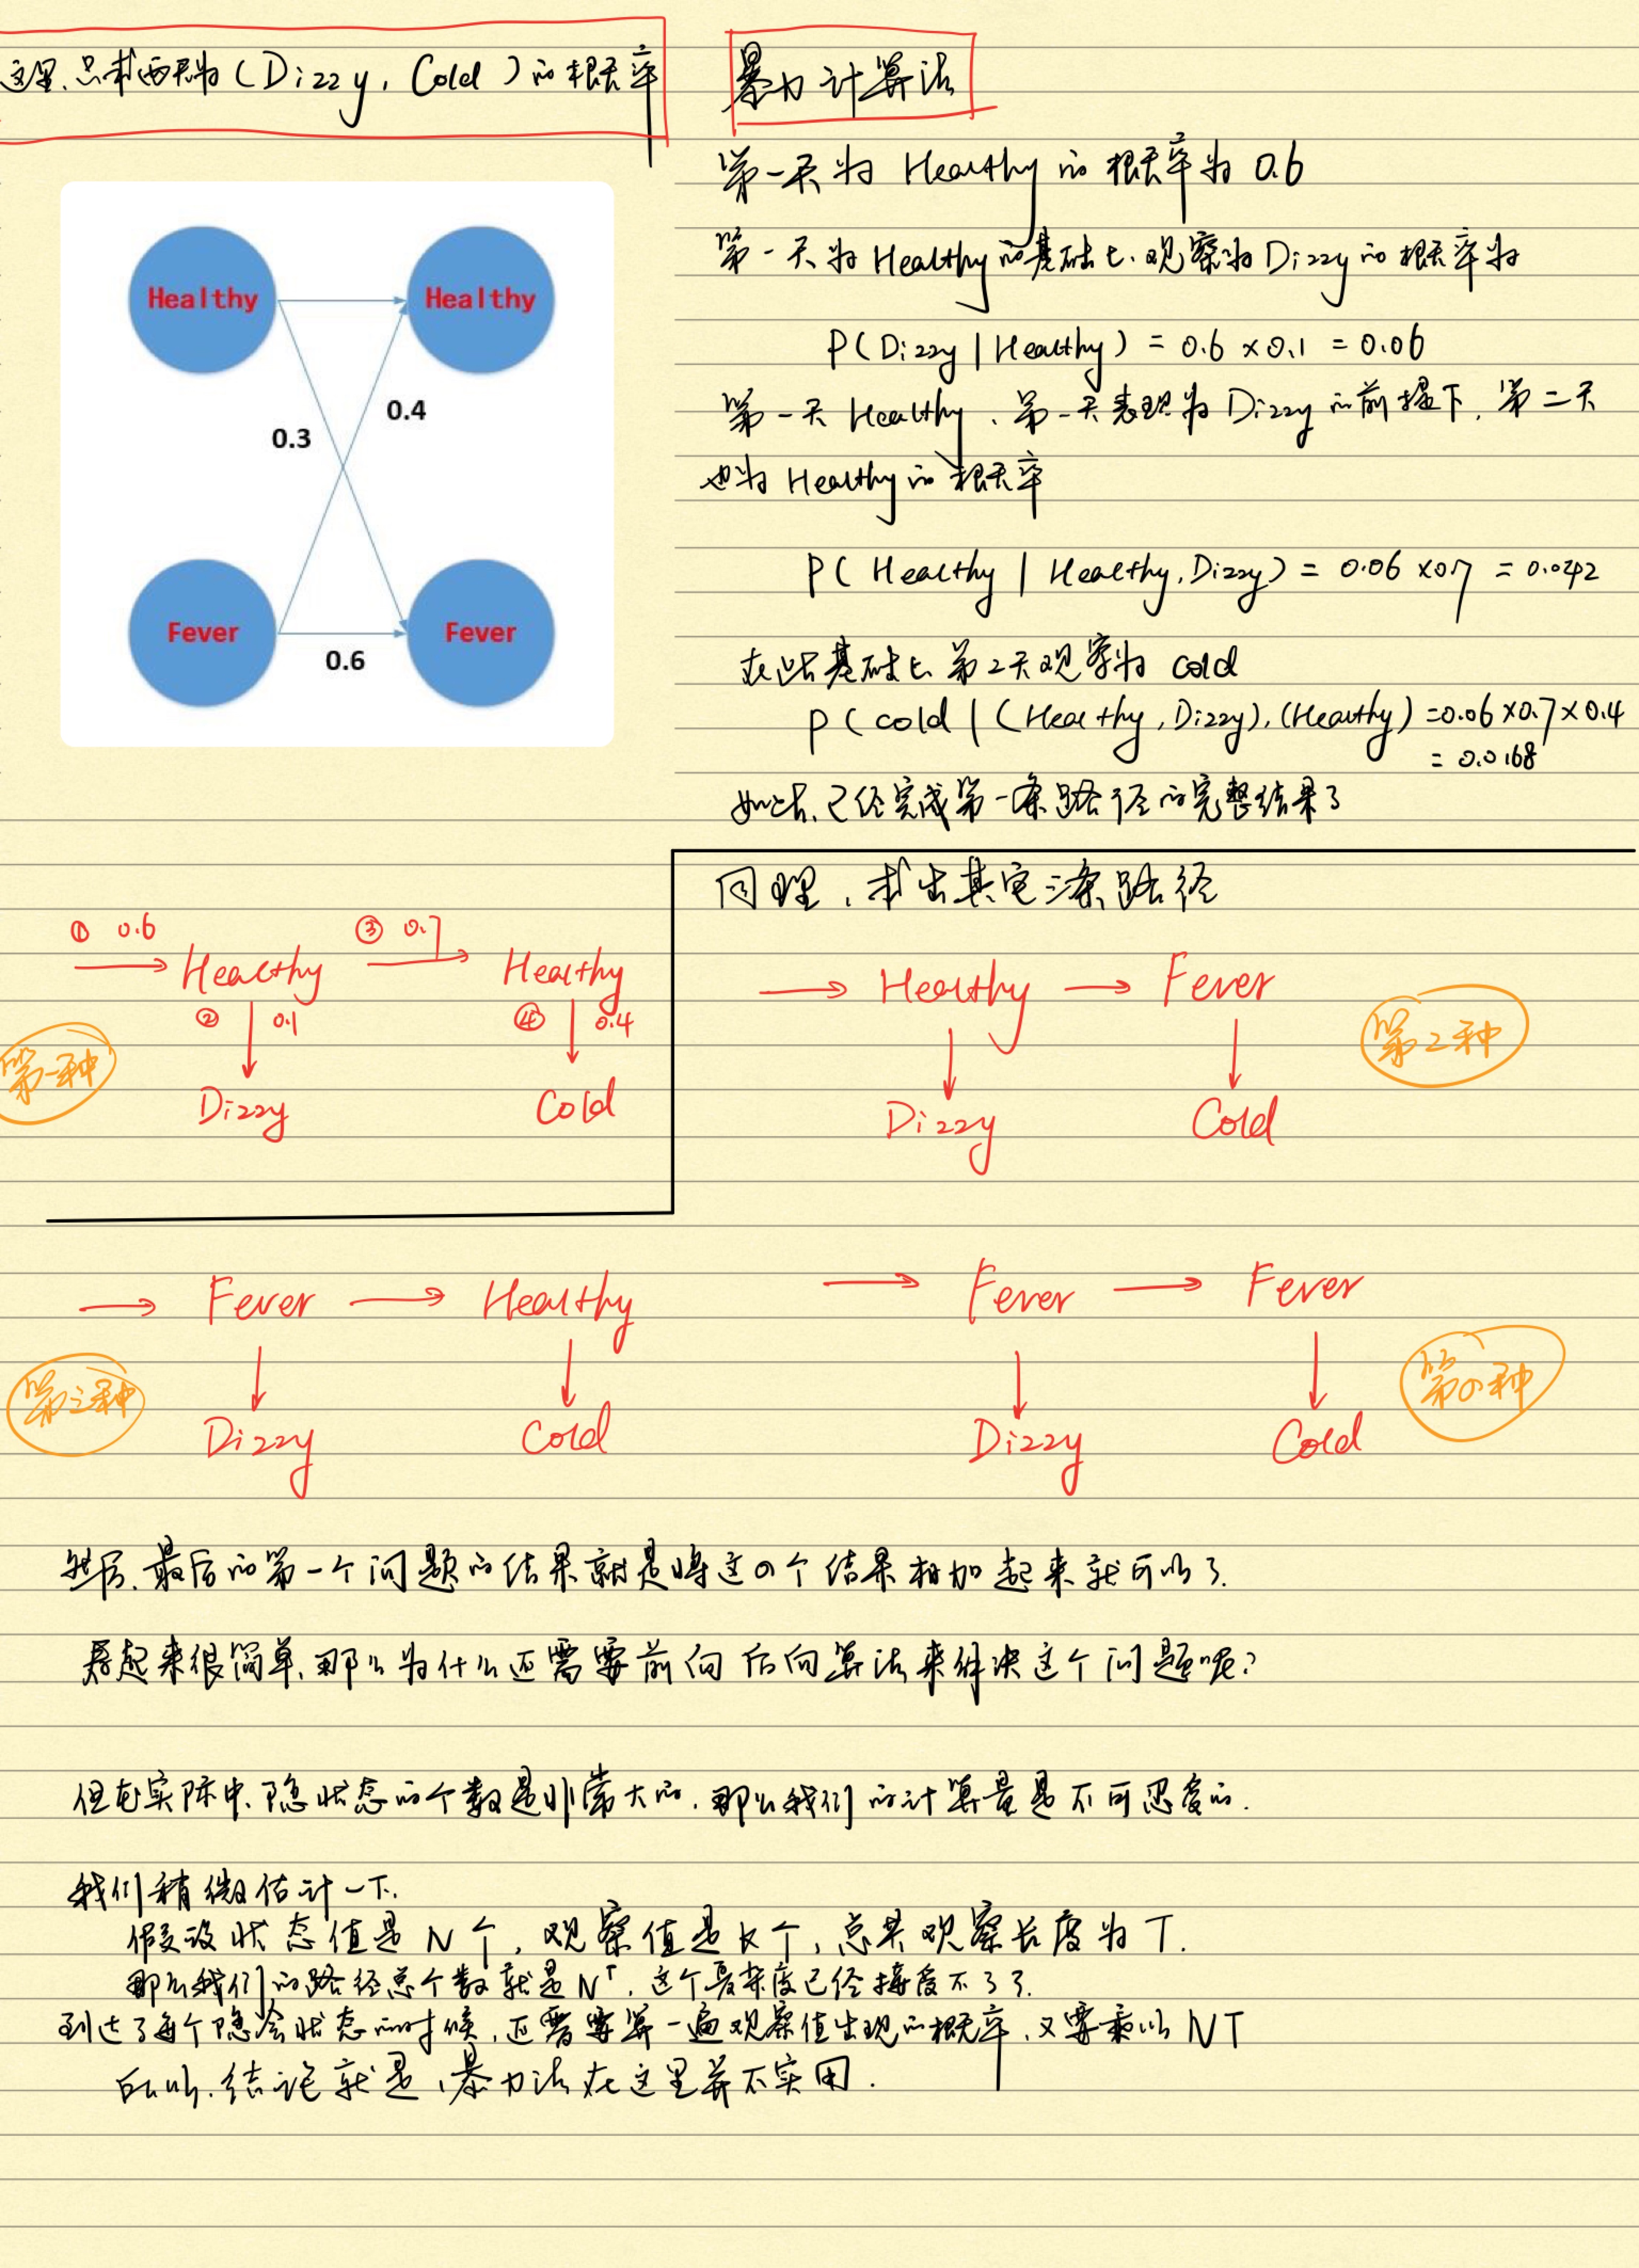 这里,只求两天为(Dizzy, Cold)的概率
暴力计算法
第一天为 Healthy 的概率为 0.6
第一天为 Healthy 的基础上,观察为 Dizzy 的概率为
P(Dizzy | Healthy) = 0.6 × 0.1 = 0.06
第一天 Healthy、第一天表现为 Dizzy 的前提下,第二天
也为 Healthy 的概率
P( Healthy | Healthy, Dizzy) = 0.06 × 0.7 = 0.042
在此基础上第2天观察为 cold
P( cold | (Healthy, Dizzy), (Healthy) = 0.06 × 0.7 × 0.4
= 0.0168
如此,已经完成第一条路径的完整结果了
Healthy Healthy
0.4
0.3
Fever Fever
0.6
① 0.6 ③ 0.7
Healthy Healthy
② 0.1 ④ 0.4
第一种
Dizzy Cold
同理,求出其它三条路径
Healthy Fever
第2种
Dizzy Cold
Fever Healthy
第三种
Dizzy Cold
Fever Fever
第四种
Dizzy Cold
然后,最后的第一个问题的结果就是将这四个结果相加起来就可以了.
看起来很简单,那么为什么还需要前向后向算法来解决这个问题呢?
但在实际中,隐状态的个数是非常大的,那么我们的计算量是不可忍受的.
我们稍微估计一下.
假设状态值是 N 个,观察值是 K 个,总共观察长度为 T.
那么我们的路径总个数就是 Nᵀ,这个复杂度已经接受不了了.
到达了每个隐含状态的时候,还需要算一遍观察值出现的概率,又要乘以 NT
所以,结论就是,暴力法在这里并不实用.